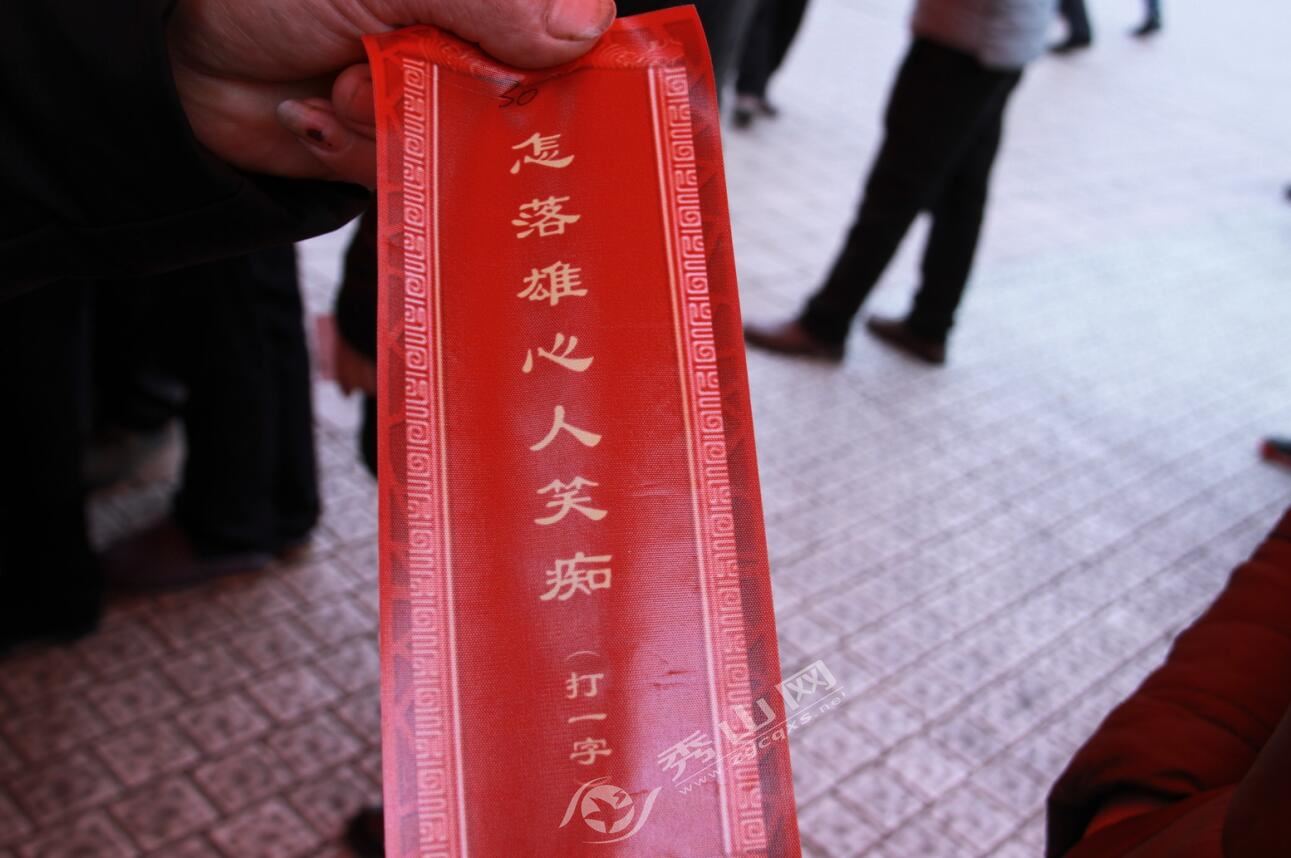 50
怎落雄心人笑痴
（打一字
秀山网
www.zgcqxs.net